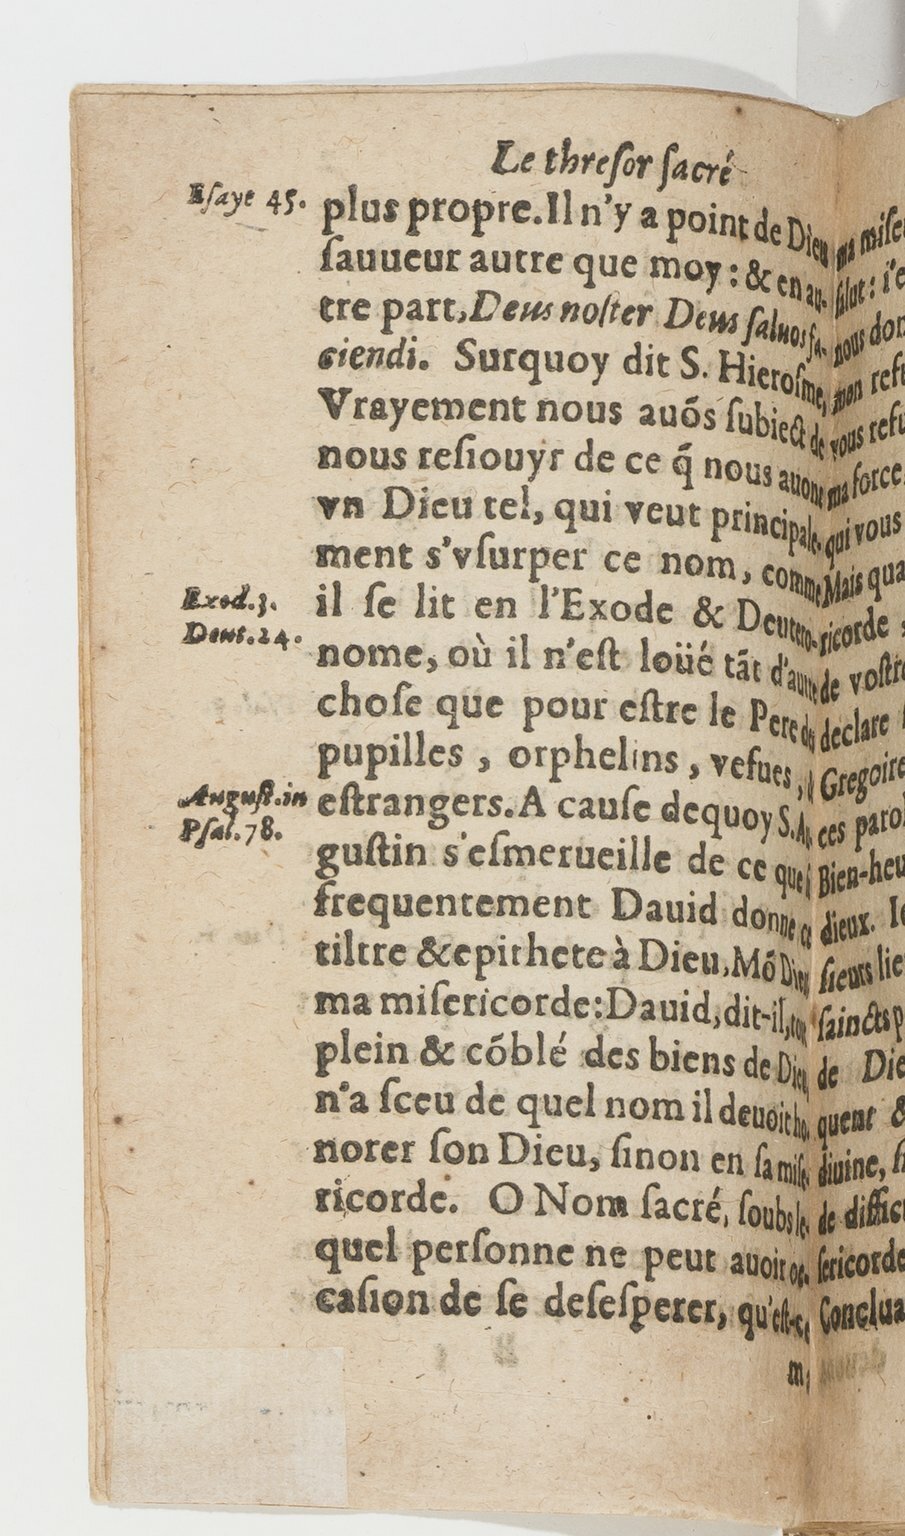 Le threſor ſacré
Eſaye 45.
plus propre. Il n'y a point de Dieu
ſauueur autre que moy : & en au-
tre part, Deus noſter Deus ſaluos fa-
ciendi. Surquoy dit S. Hieroſme,
Vrayement nous auõs ſubiect de
nous reſiouyr de ce q̃ nous auons
vn Dieu tel, qui veut principale-
ment s'vſurper ce nom, comme
Exod. 3.
Deut. 24.
il ſe lit en l'Exode & Deutero-
nome, où il n'eſt loüé tãt d'autre
choſe que pour eſtre le Pere des
pupilles , orphelins , vefues,
Auguſt. in
Pſal. 78.
eſtrangers. A cauſe dequoy S. Au-
guſtin s'eſmerueille de ce que
frequentement Dauid donne ce
tiltre & epithete à Dieu, Mõ Dieu
ma miſericorde : Dauid, dit-il, tout
plein & cõblé des biens de Dieu
n'a ſceu de quel nom il deuoit ho-
norer ſon Dieu, ſinon en ſa miſe-
ricorde. O Nom ſacré, ſoubs le-
quel perſonne ne peut auoir oc-
caſion de ſe deſeſperer, qu'eſt-ce
ma miſe
ſalut : i'e
nous don
mon refu
vous refu
ma force
qui vous
Mais qua
ricorde :
de voſtre
declare
Gregoire
ces parol
Bien-heu
dieux. Ie
ſieurs lie
ſaincts p
de Die
quent &
diuine, ſi
de difficu
ſericorde
Conclua